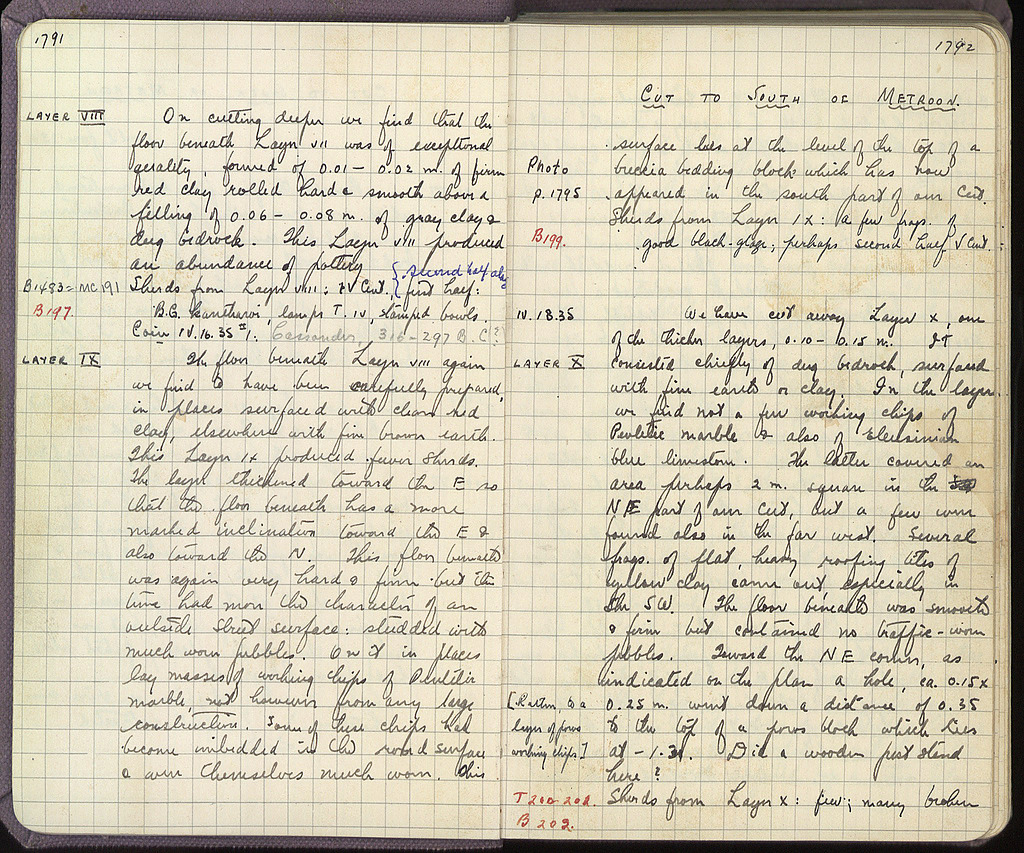 1791
LAYER VIII On cutting deeper we find that the
floor beneath Layer VII was of exceptional
quality, formed of 0.01 – 0.02 m. of firm
red clay rolled hard & smooth above a
filling of 0.06 – 0.08 m. of gray clay &
dug bedrock. This Layer VIII produced
an abundance of pottery.
{second half
B1483 = MC191 Sherds from Layer VIII: IV Cent., {first half:
B197. B.G. kantharoi, lamps T. IV, stamped bowls.
Coin IV.16.35 Cassander, 316–297 B.C(?)
LAYER IX The floor beneath Layer VIII again
we find to have been carefully prepared,
in places surfaced with clean red
clay, elsewhere with fine brown earth.
This Layer IX produced fewer sherds.
The layer thickened toward the E so
that the floor beneath has a more
marked inclination toward the E &
also toward the N. This floor beneath
was again very hard & firm but this
time had more the character of an
outside street surface: studded with
much worn pebbles. On it in places
lay masses of working chips of Pentelic
marble, not however from any large
construction. Some of these chips had
become imbedded in the road surface
& were themselves much worn. This
1792
CUT TO SOUTH OF METROON.
surface lies at the level of the top of a
Photo breccia bedding block which has now
p. 1795 appeared in the south part of our cut.
Sherds from Layer IX: a few frags. of
B199. good black-glaze; perhaps second half V Cent.
IV.18.35 We have cut away Layer X, one
of the thicker layers, 0.10 – 0.15 m. It
LAYER X consisted chiefly of dug bedrock, surfaced
with fine earth or clay. In the layer
we find not a few working chips of
Pentelic marble & also of Eleusinian
blue limestone. The latter covered an
area perhaps 2 m. square in the
NE part of our cut, but a few were
found also in the far west. Several
frags. of flat, heavy roofing tiles of
yellow clay came out, especially in
the SW. The floor beneath was smooth
& firm but contained no traffic-worn
pebbles. Toward the NE corner, as
indicated on the plan a hole, ca. 0.15 x
[Rather, to a 0.25 m. went down a distance of 0.35
layer of poros to the top of a poros block which lies
working chips] at – 1.31. Did a wooden post stand
here?
T200-202. Sherds from Layer X: few; many broken
B 202.